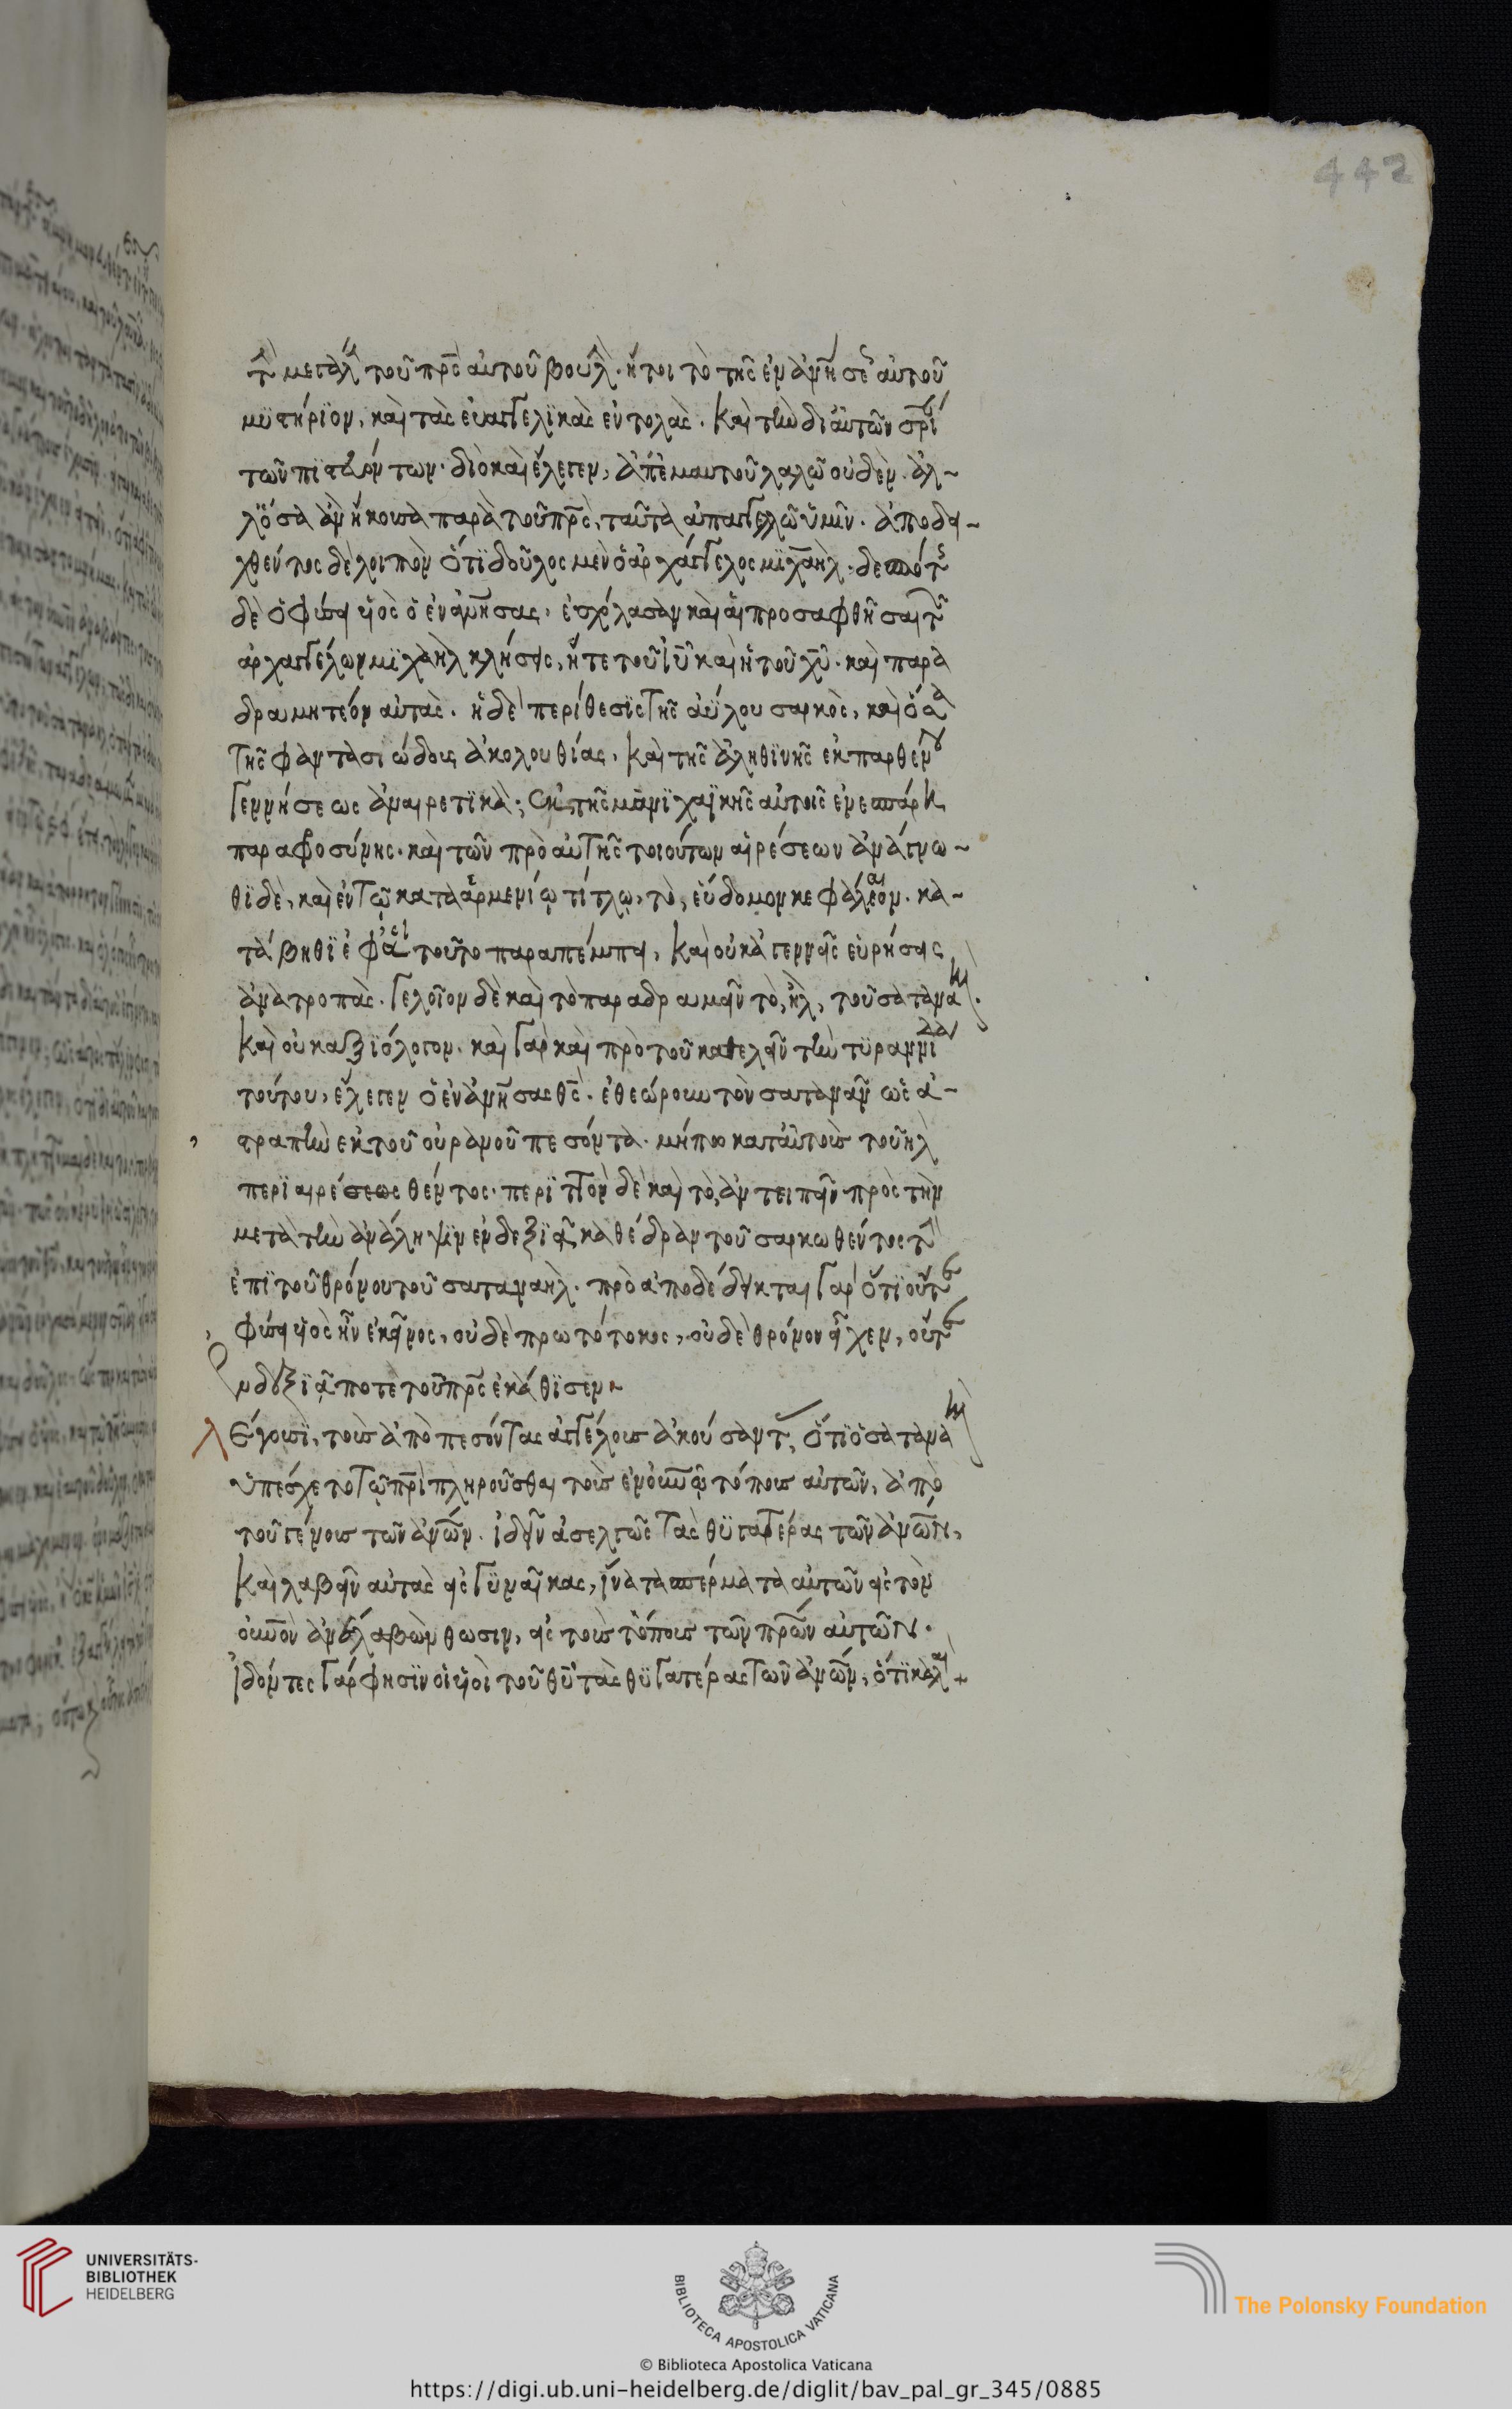 442
τ μεγάλ τοῦ πρς αὐτοῦ βουλ. ἤτοι τὸ τῆς ἐνανη σε αὐτοῦ
μυστήριον, καὶ τὰς εὐαγγελικὰς ἐντολὰς. καὶ τὴν δι αὐτῶν σρι
τῶν πιστευόντων. διὸ καὶ ἔλεγεν, ἀπ' ἐμαυτοῦ λαλῶ οὐδὲν. ἀλ~
λ' ὅσα ἂν ἤκουσα παρὰ τοῦ πρς, ταῦτα ἀπαγγελῶ ὑμῖν. ἀποδει~
χθέντος δὲ λοιπὸν ὅτι δοῦλος μὲν ὁ ἀρχάγγελος μιχαὴλ. δεσπότ
δὲ ὁ φύσει υἱὸς ὁ ἐνανησας, ἐσχόλασαν καὶ αἱ προσαφθῆσαι τ
ἀρχαγγέλων μιχαὴλ κλήσεις, ἥ τε τοῦ ιυ καὶ ἡ τοῦ χυ. καὶ παρα
δραμητέον αὐτὰς. ἡ δὲ περίθεσις τῆς ἀΰλου σαρκὸς, καὶ ὅσα
τῆς φαντασιώδους ἀκολουθίας, καὶ τῆς ἀληθινῆς ἐκ παρθένου
γεννήσεως ἀναιρετικὰ, ἐκ τῆς μανιχαϊκῆς αὐτοῖς ἐνεσπάρη
παραφροσύνης. καὶ τῶν πρὸ αὐτῆς τοιούτων αἱρέσεων ἀνάγνω~
θι δὲ, καὶ ἐν τῷ κατὰ ἀρμενίων τίτλῳ, τὸ, εὔδομον κεφάλαιον. κα~
τάβηθι ἐφ' ἃ τοῦτο παραπέμπει, καὶ οὐκ ἀγεννεῖς εὑρήσεις
ἀνατροπὰς. γελοῖον δὲ καὶ τὸ παραδραμεῖν τὸ, ηλ, τοῦ σατανα
καὶ οὐκ ἀξιόλογον. καὶ γὰρ καὶ πρὸ τοῦ κατελθεῖν τὴν τυραννίδα
τούτου, ἔλεγεν ὁ ἐνανησας θς. ἐθεώρουν τὸν σατανᾶν ὡς ἀ~
στραπὴν ἐκ τοῦ οὐρανοῦ πεσόντα. μήπω κατ' αὐτοὺς τοῦ ηλ
περιαιρέσεως θέντος. περιττὸν δὲ καὶ τὸ, ἀντειπεῖν πρὸς τὴν
μετὰ τὴν ἀνάληψιν ἐν δεξιᾷ καθέδραν τοῦ σαρκωθέντος τ
ἐπὶ τοῦ θρόνου τοῦ σαταναὴλ. προαποδέδεικται γὰρ ὅτι οὔτε
φύσει υἱὸς ἦν ἐκεῖνος, οὐδὲ πρωτότοκος, οὐδὲ θρόνον εἶχεν, οὔτε
ἐν δεξιᾷ ποτε τοῦ πρς ἐκάθισεν~
Λέγουσι, τοὺς ἀποπεσόντας ἀγγέλους ἀκούσαντ, ὅτι ὁ σατανα
ὑπέσχετο τῷ πρι πληροῦσθαι τοὺς ἐν οὐνω τόπους αὐτῶν, ἀπὸ
τοῦ γένους τῶν ανων. ἰδεῖν ἀσελγῶς τὰς θυγατέρας τῶν ανων,
καὶ λαβεῖν αὐτὰς εἰς γυναῖκας, ἵνα τὰ σπέρματα αὐτῶν εἰς τὸν
οὐνον ἀνέλθωσιν, εἰς τοὺς τόπους τῶν πρων αὐτῶν.
ἰδόντες γάρ φησιν οἱ υἱοὶ τοῦ θυ τὰς θυγατέρας τῶν ανων, ὅτι καλαὶ
UNIVERSITÄTS-
BIBLIOTHEK
HEIDELBERG
BIBLIOTECA APOSTOLICA VATICANA
The Polonsky Foundation
© Biblioteca Apostolica Vaticana
https://digi.ub.uni-heidelberg.de/diglit/bav_pal_gr_345/0885